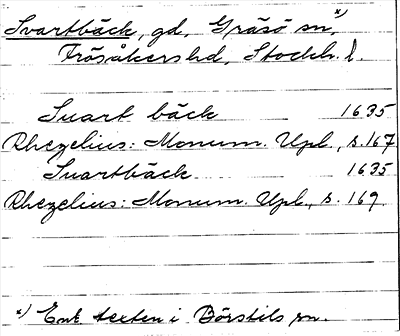 Svartbäck, gd, Gräsö sn, x)
Frösåkers hd, Stockh. l.
Suart bäck 1635
Rhezelius: Monum. Upl., s. 167
Suartbäck 1635
Rhezelius: Monum. Upl., s. 169
x) Enl. texten i Börstils sn.